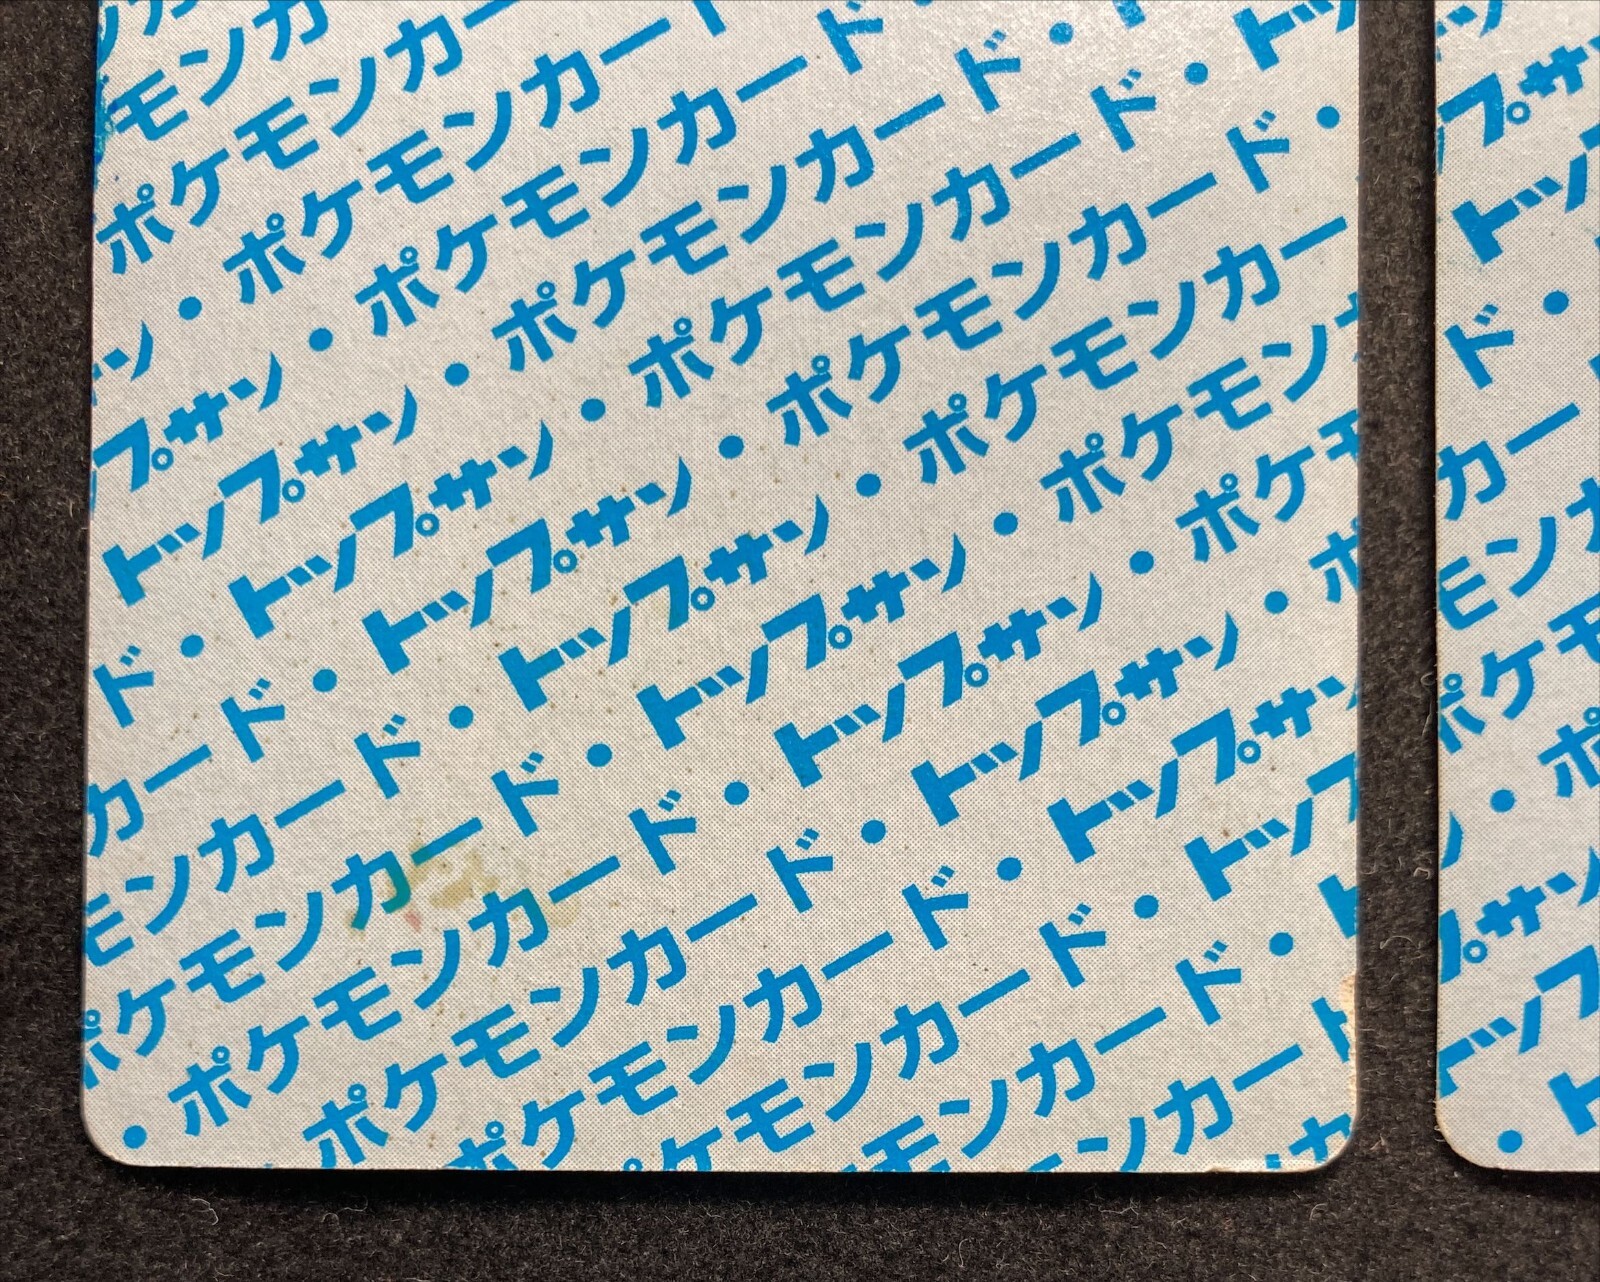 モンカ
ポケモンカー
ン・ポケモンカー
プサン・ポケモンカード
トップサン・ポケモンカード・
ド・トップサン・ポケモンカード・ト
カード・トップサン・ポケモンカード・
モンカード・トップサン・ポケモンカー
ポケモンカード・トップサン・ポケモン
・ポケモンカード・トップサン・ポケモ
ポケモンカード・トップサン・ポ
ポケモンカード・トップサン
ケモンカード・トップ
モンカード・ト
ンカー
プサ
トッ
ド・
カー
モンカ
ポケモ
・ポ
プサン
トップ
・ト